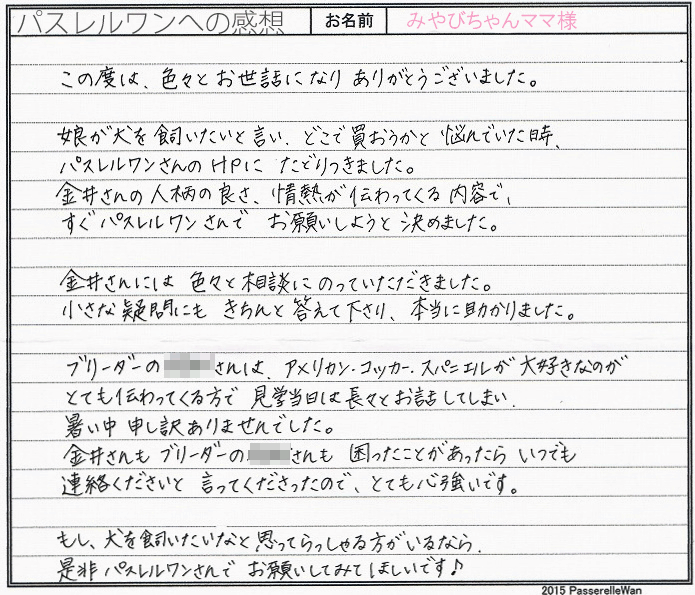 パスレルワンへの感想 お名前 みやびちゃんママ様
この度は、色々とお世話になりありがとうございました。
娘が犬を飼いたいと言い、どこで買おうかと悩んでいた時、
パスレルワンさんのHPにたどりつきました。
金井さんの人柄の良さ、情熱が伝わってくる内容で、
すぐパスレルワンさんでお願いしようと決めました。
金井さんには色々と相談にのっていただきました。
小さな疑問にもきちんと答えて下さり、本当に助かりました。
ブリーダーの さんは、アメリカン・コッカー・スパニエルが大好きなのが
とても伝わってくる方で見学当日は長々とお話してしまい、
暑い中申し訳ありませんでした。
金井さんもブリーダーの さんも困ったことがあったらいつでも
連絡くださいと言ってくださったので、とても心強いです。
もし、犬を飼いたいなと思ってらっしゃる方がいるなら、
是非パスレルワンさんでお願いしてみてほしいです♪
2015 PasserelleWan